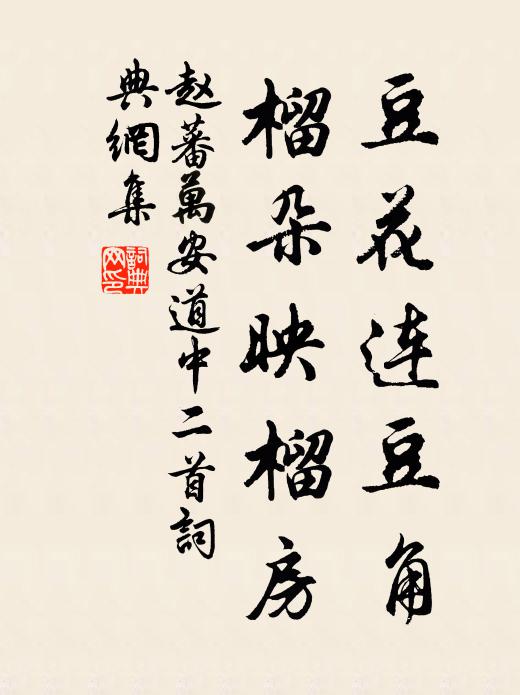 豆花连豆角
榴朵映榴房
赵蕃萬安道中二首詞
典網集
詞典网印